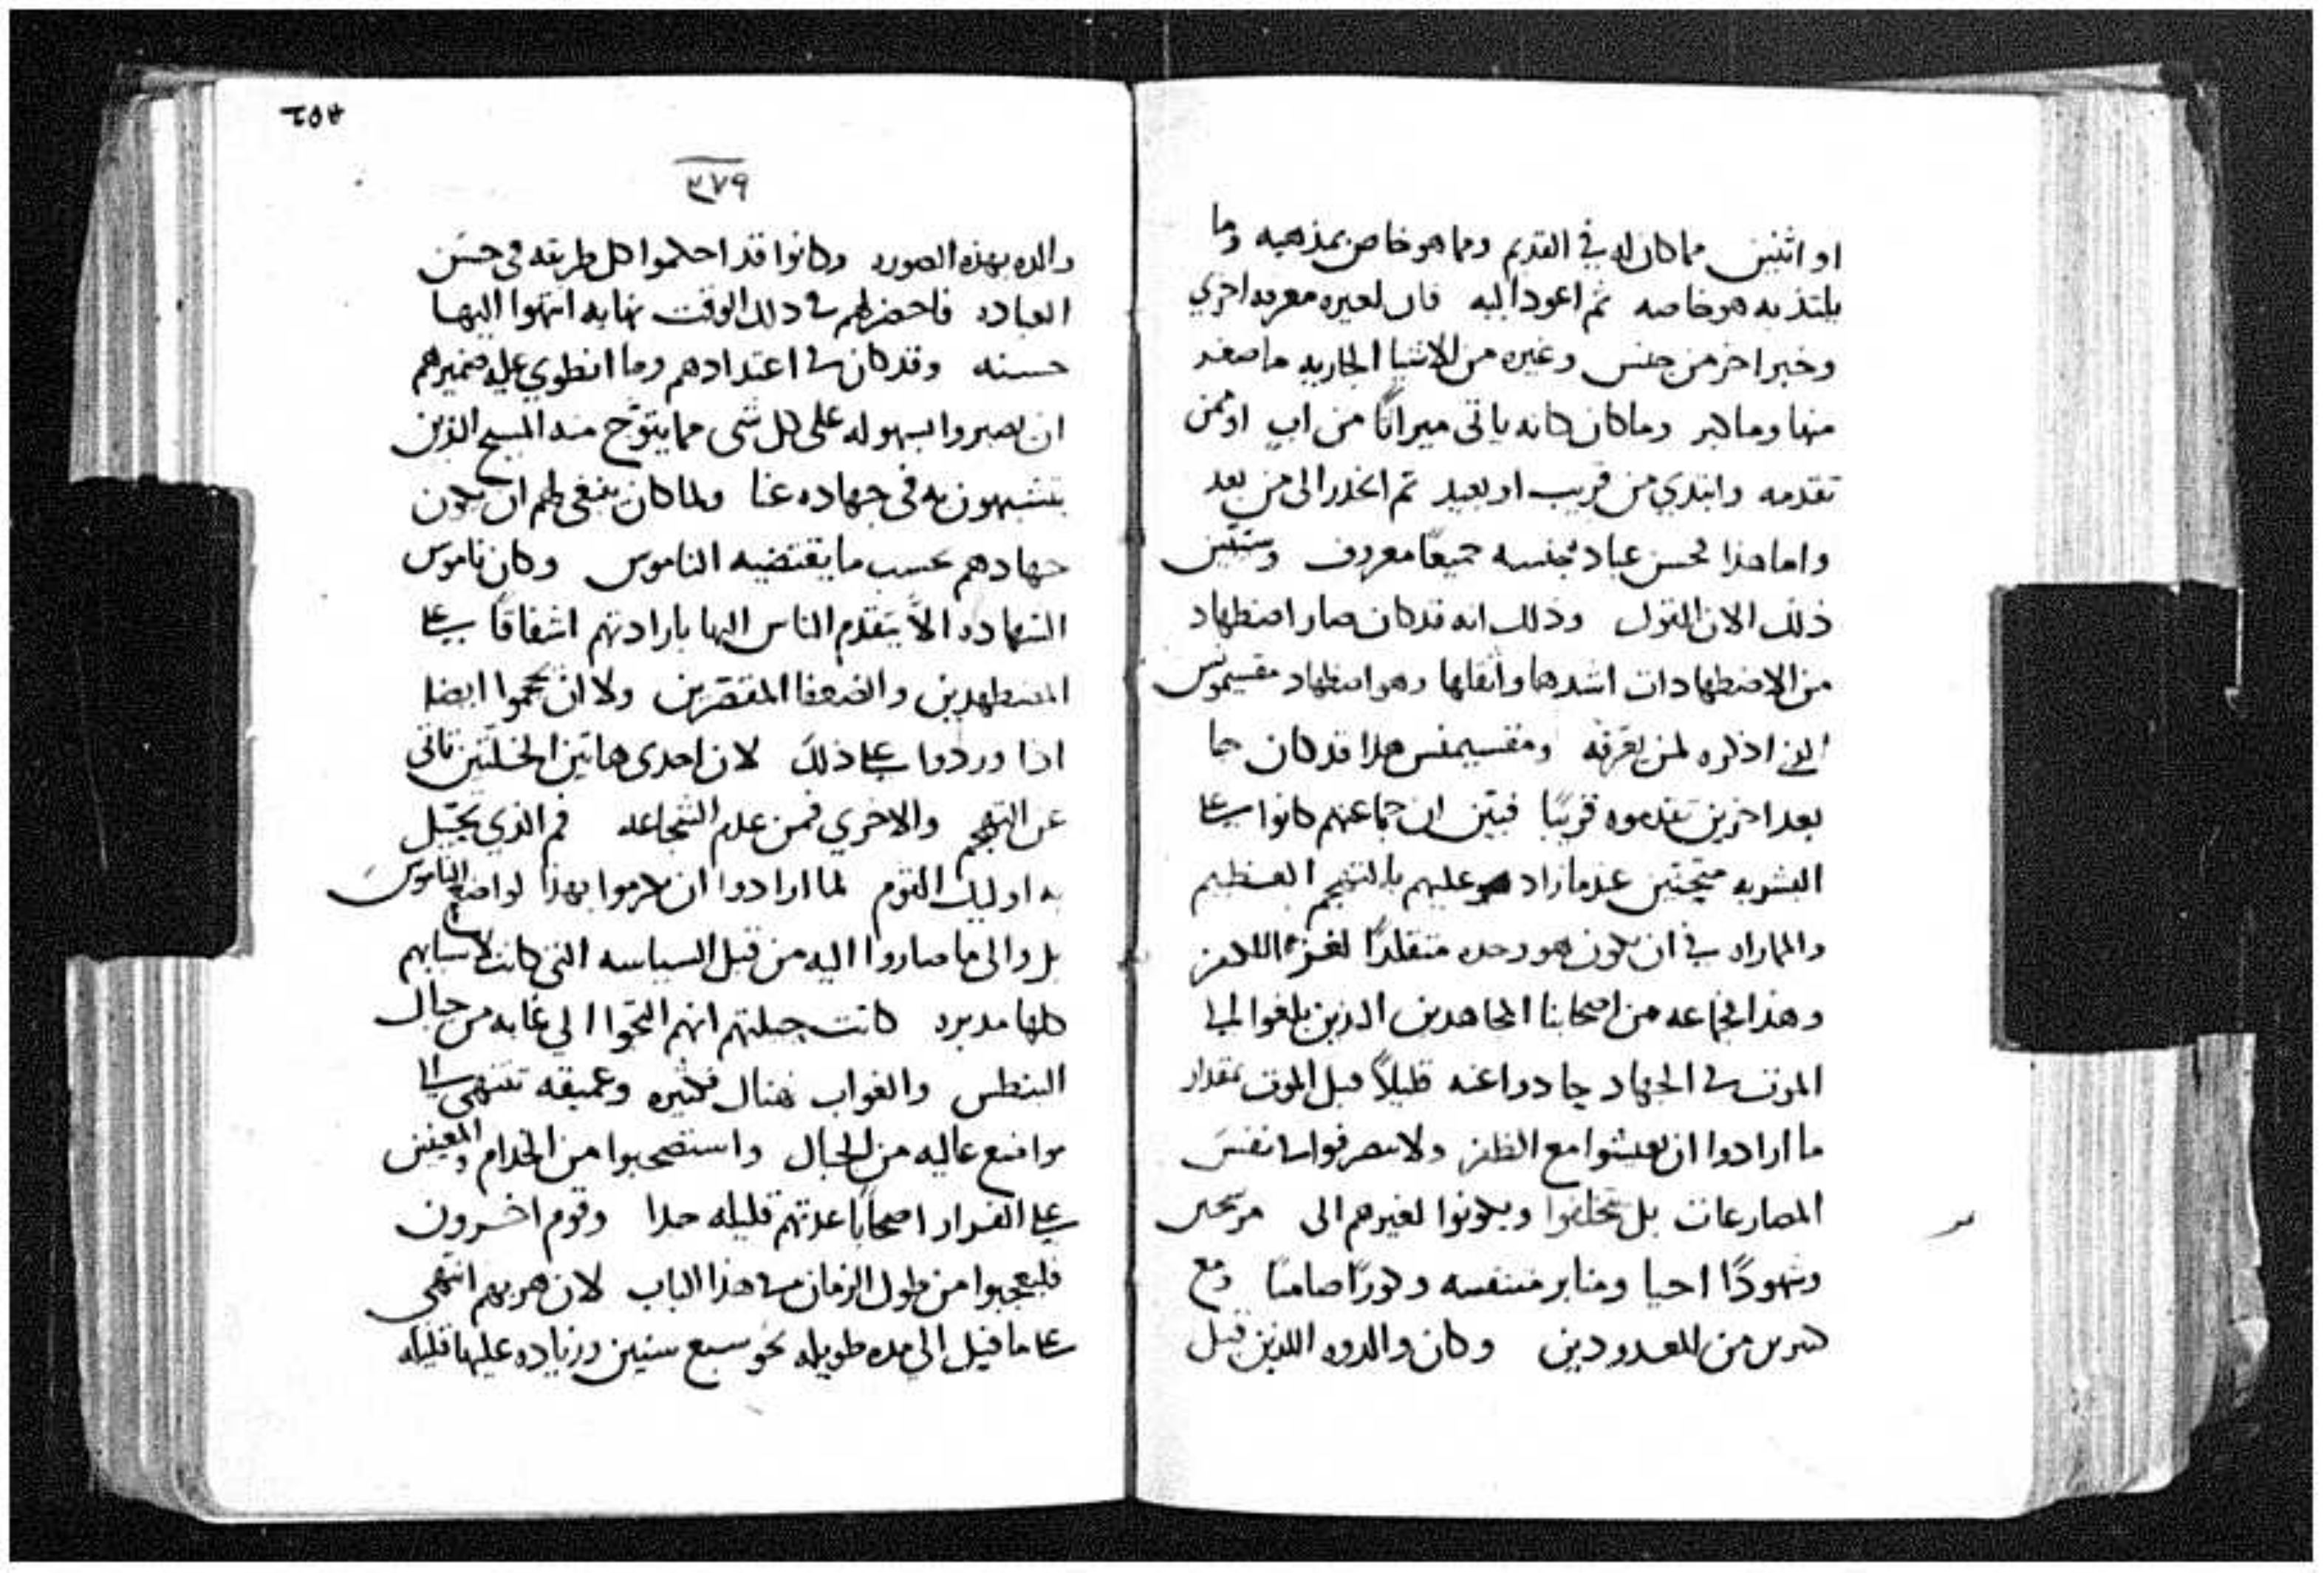 او اثنين مما كان له في القديم ومما هو خاص بمذهبه وما
يلتذ به هو خاصه ثم اعود اليه فان لغيره معرفه اخري
وخبر اخر من جنس وغيره من الاشيا الجاريه ما صغر
منها وما كبر وما كان كانه ياتى ميراثًا من ابٍ او ممن
تقدمه وابتدي من قريب او بعيد ثم انحدر الى من بعد
واما هذا فحسن عباد جنسه جميعًا معروف وستبين
ذلك الان القول وذلك انه قد كان صار اضطهاد
من الاضطهادات اشدها واثقلها وهو اضطهاد مقسيموس
الذي اذكره لمن يعرفه ومقسيمنس هذا قد كان جا
بعد اخرين تقدموه قريبًا فبين ان جماعتهم كانوا على
البشريه عندما زاد هو عليهم بالتهجم العظيم
والمماراه في ان يكون هو وحده متقلدًا لعزه الكفر
وهذا فجماعه من اصحابنا المجاهدين الذين بلغوا الى
الموت في الجهاد وحادوا عنه قليلاً قبل الموت بمقدار
ما ارادوا ان يعيشوا مع الظفر ولا ينصرفوا
المصارعات بل تخلفوا ويكونوا لغيرهم الى
وشهودًا احيا ومنابر متنفسه وكورًا صامتًا ومع
كثيرين من المعدودين وكان والدوه اللذين قبل
٢٥٣
٣٧٩
والده بهذه الصوره وكانوا قد احكموا كل طريقه في حسن
العباده فاحضر لهم في ذلك الوقت نهايه انتهوا اليها
حسنه وقد كان في اعتدادهم وما انطوي عليه ضميرهم
ان يصبروا بسهوله على كل شى مما يتوّج منه المسيح الذين
يتشبهون به في جهاده عنا ولما كان ينبغى لهم ان يكون
جهادهم بحسب ما يقتضيه الناموس وكان ناموس
الشهاده الاّ يتقدم الناس اليها بارادتهم اشفاقًا على
المضطهدين والضعفا المقصرين ولا ان يحجموا ايضا
اذا وردوا على ذلك لان احدى هاتين الخلتين تاتى
عن التهجم والاخري فمن عدم الشجاعه فم الذي يحتيل
به اوليك القوم لما ارادوا ان يكرموا بهذا لواضع الناموس
بل والى ما صاروا اليه من قبل السياسه التى كانت لاسبابهم
كلها مدبره كانت جملتهم انهم التجوا الي غابه من جبال
البنطس والغواب هناك فكثيره وعميقه تنتهى الى
مواضع عاليه من الجبال واستصحبوا من الخدام والمعينين
على الفرار اصحابًا عدتهم قليله جدا وقوم اخرون
فليعجبوا من طول الزمان في هذا الباب لان هربهم انتهى
على ما قيل الى مده طويله نحو سبع سنين وزياده عليها قليله